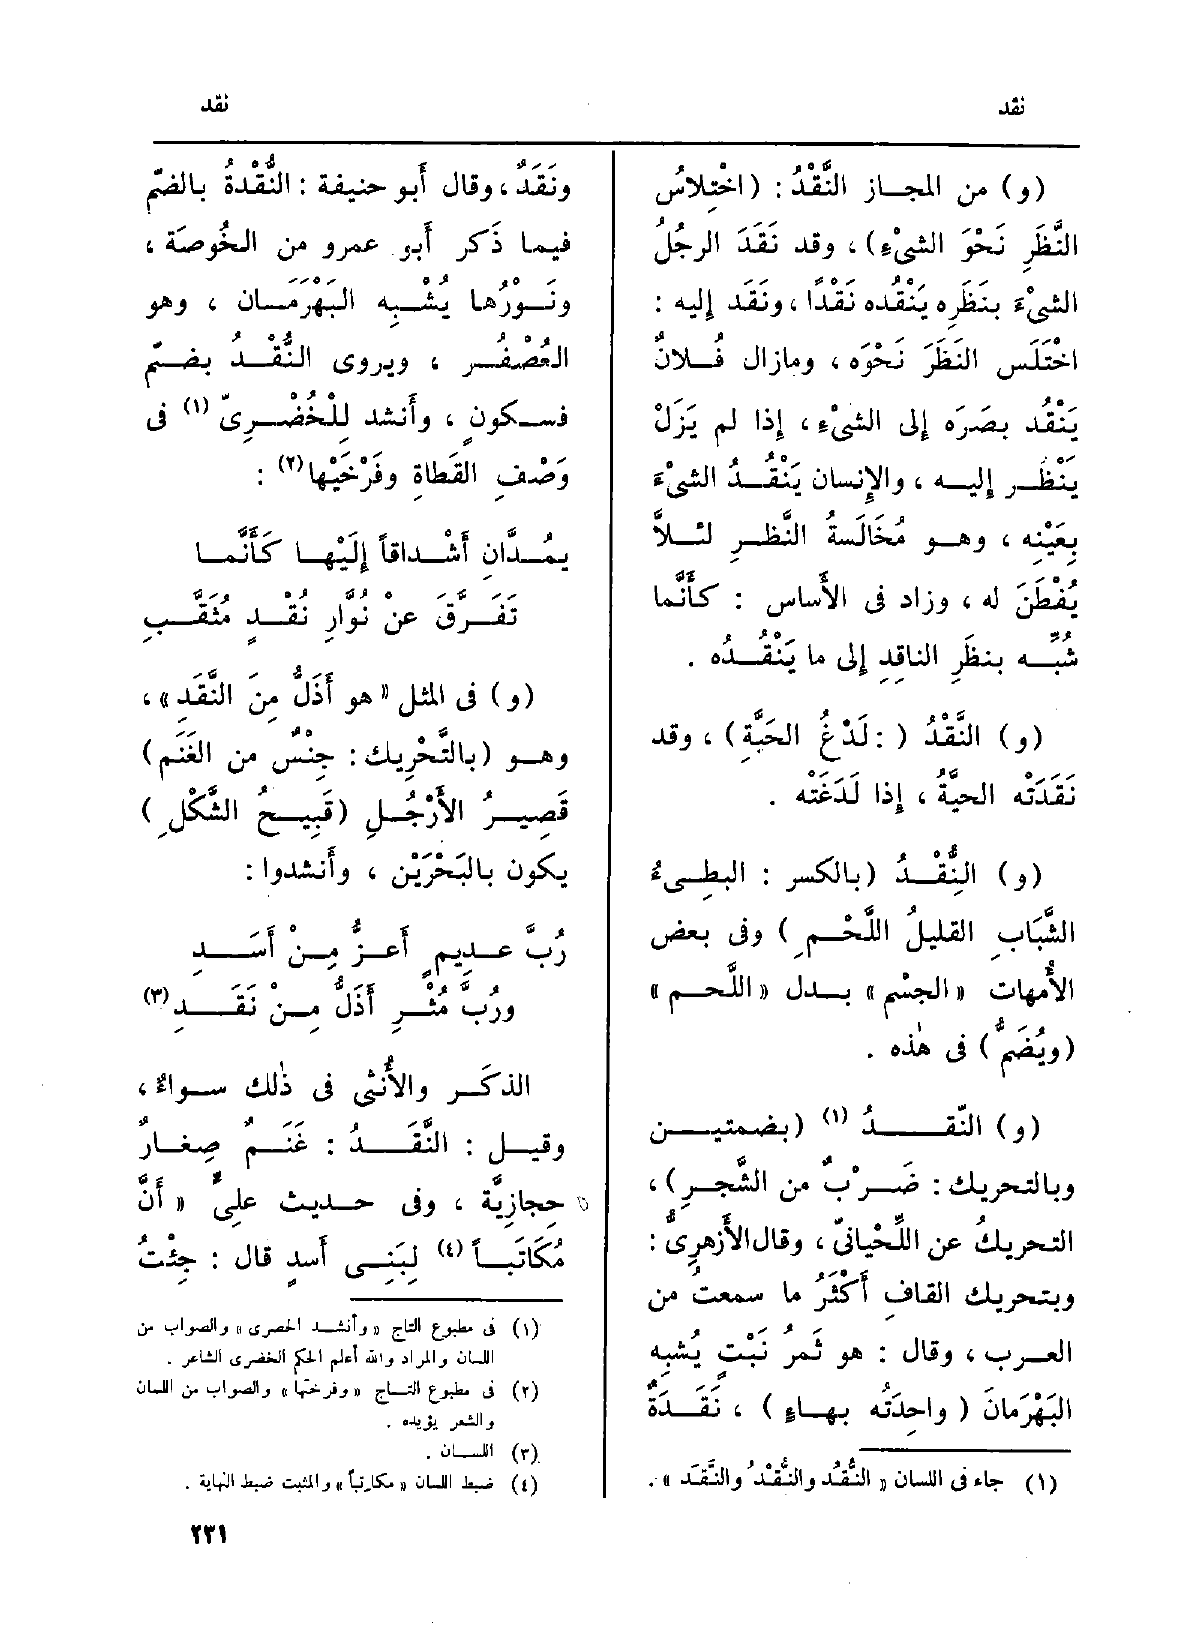 نقد
نقد
(و) من المجاز النَّقْدُ : (اخْتِلاسُ
النَّظَرِ نَحْوَ الشىْءِ) ، وقد نَقَدَ الرجُلُ
الشىْءَ بنَظَرِه يَنْقُده نَقْدًا ، ونَقَد إليه :
اخْتَلَس النَظَرَ نَحْوَه ، ومازال فُلانٌ
يَنْقُد بصَرَه إلى الشىْءِ ، إذا لم يَزَلْ
يَنْظُر إليه ، والإِنسان يَنْقُدُ الشىْءَ
بِعَيْنِه ، وهو مُخَالَسةُ النَّظرِ لئلاَّ
يُفْطَنَ له ، وزاد فى الأَساس : كأَنَّما
شُبِّه بنظَرِ الناقِدِ إلى ما يَنْقُده .
(و) النَّقْدُ ( : لَدْغُ الحَيَّةِ) ، وقد
نَقَدَتْه الحيَّةُ ، إذا لَدَغَتْه .
(و) النِّقْدُ (بالكسر : البطِىءُ
الشَّبَابِ القليلُ اللَّحْمِ ) وفى بعض
الأُمهات « الجِسْم » بدل « اللَّحم »
(ويُضَمُّ) فى هٰذه .
(و) النّقدُ (١) (بضمتين
وبالتحريك : ضَرْبٌ من الشَّجرِ) ،
التحريكُ عن اللِّحْيانىّ ، وقال الأَزهرىُّ :
وبتحريك القافِ أَكْثَرُ ما سمعتُ من
العرب ، وقال : هو ثَمرُ نَبْتٍ يُشبِه
البَهْرَمانَ ( واحِدَتُه بهاءٍ ) ، نَقَدَةٌ
(١) جاء فى اللسان « النُّقُد والنُّقْدُ والنَّقَد » .
ونَقَدٌ ، وقال أَبو حنيفة : النُّقْدةُ بالضمّ
فيما ذَكر أَبو عمرو من الخُوصَة ،
ونَوْرُها يُشْبِه البَهْرَمَان ، وهو
العُصْفُر ، ويروى النُّقْدُ بضمّ
فسكونٍ ، وأَنشد لِلْخُضْرِىّ (١) فى
وَصْفِ القَطَاةِ وفَرْخَيْها (٢) :
يمُدَّانِ أَشْداقاً إِلَيْها كَأَنَّما
تَفَرَّقَ عنْ نُوَّارِ نُقْدٍ مُثَقَّبِ
(و) فى المثل « هو أَذَلُّ مِنَ النَّقَدِ » ،
وهو (بالتَّحْرِيك : جِنْسٌ من الغَنَم)
قَصِيرُ الأَرْجُلِ (قَبِيحُ الشَّكْلِ )
يكون بالبَحْرَيْن ، وأَنشدوا :
رُبَّ عديمٍ أَعزُّ مِنْ أَسَدِ
ورُبَّ مُثْرٍ أَذَلُّ مِنْ نَقَدِ (٣)
الذكَر والأُنثى فى ذٰلك سواءٌ ،
وقيل : النَّقَدُ : غَنَمٌ صِغارٌ
حِجازِيَّة ، وفى حديث علِىٍّ « أَنَّ
مُكَاتَباً (٤) لِبَنِى أَسدٍ قال : جِئْتُ
(١) فى مطبوع التاج « وأنشد الحصرى » والصواب من
اللسان والمراد والله أعلم الحكم الخضرى الشاعر .
(٢) فى مطبوع التاج « وفرختها » والصواب من اللسان
والشعر يؤيده .
(٣) اللسان .
(٤) ضبط اللسان « مكاتِباً » والمثبت ضبط النهاية .
٢٣١